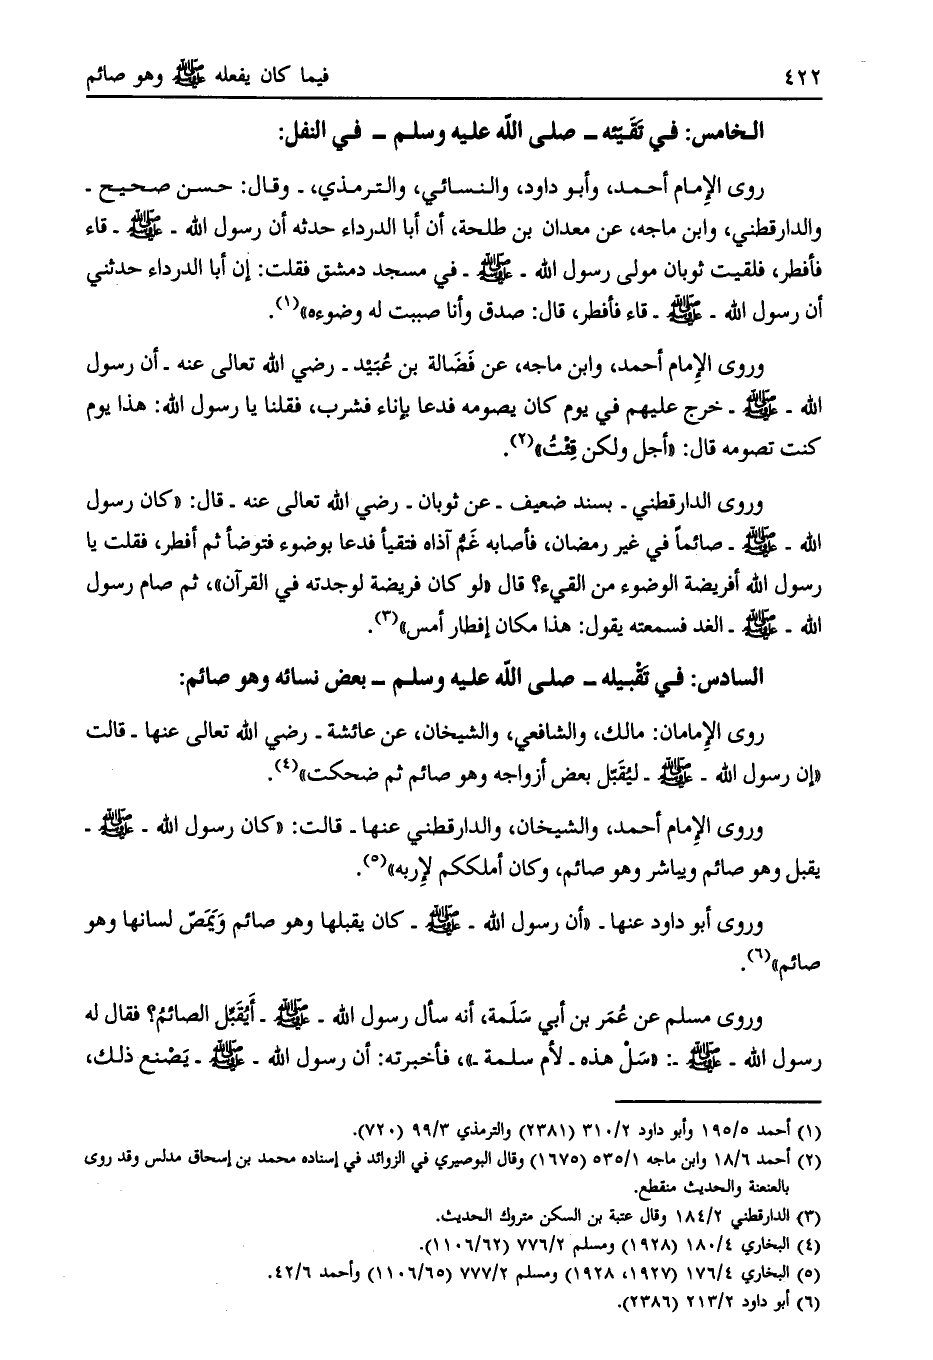 ٤٢٢ فيما كان يفعله ﷺ وهو صائم
الخامس: في تَقَيّئه ـ صلى اللّه عليه وسلم ـ في النفل:
روى الإمام أحمد، وأبو داود، والنسائي، والترمذي، ـ وقال: حسن صحيح ـ
والدارقطني، وابن ماجه، عن معدان بن طلحة، أن أبا الدرداء حدثه أن رسول الله ـ ﷺ ـ قاء
فأفطر، فلقيت ثوبان مولى رسول الله ـ ﷺ ـ في مسجد دمشق فقلت: إن أبا الدرداء حدثني
أن رسول الله ـ ﷺ ـ قاء فأفطر، قال: صدق وأنا صببت له وضوءه»(١).
وروى الإمام أحمد، وابن ماجه، عن فَضَالة بن عُبَيْد ـ رضي الله تعالى عنه ـ أن رسول
الله ـ ﷺ ـ خرج عليهم في يوم كان يصومه فدعا بإناء فشرب، فقلنا يا رسول الله: هذا يوم
كنت تصومه قال: «أجل ولكن قِئْتُ»(٢).
وروى الدارقطني ـ بسند ضعيف ـ عن ثوبان ـ رضي الله تعالى عنه ـ قال: «كان رسول
الله ـ ﷺ ـ صائماً في غير رمضان، فأصابه غَمٌّ آذاه فتقيأ فدعا بوضوء فتوضأ ثم أفطر، فقلت يا
رسول الله أفريضة الوضوء من القيء؟ قال «لو كان فريضة لوجدته في القرآن»، ثم صام رسول
الله ـ ﷺ ـ الغد فسمعته يقول: هذا مكان إفطار أمس»(٣).
السادس: في تَقْبيله ـ صلى اللّه عليه وسلم ـ بعض نسائه وهو صائم:
روى الإمامان: مالك، والشافعي، والشيخان، عن عائشة ـ رضي الله تعالى عنها ـ قالت
«إن رسول الله ـ ﷺ ـ ليُقَبّل بعض أزواجه وهو صائم ثم ضحكت»(٤).
وروى الإمام أحمد، والشيخان، والدارقطني عنها ـ قالت: «كان رسول الله ـ ﷺ ـ
يقبل وهو صائم ويباشر وهو صائم، وكان أملككم لإربه»(٥).
وروى أبو داود عنها ـ «أن رسول الله ـ ﷺ ـ كان يقبلها وهو صائم وَيَمَصّ لسانها وهو
صائم»(٦).
وروى مسلم عن عُمَر بن أبي سَلَمة، أنه سأل رسول الله ـ ﷺ ـ أَيُقَبِّل الصائمُ؟ فقال له
رسول الله ـ ﷺ ـ: «سَلْ هذه ـ لأم سلمة ـ»، فأخبرته: أن رسول الله ـ ﷺ ـ يَصْنع ذلك،
(١) أحمد ١٩٥/٥ وأبو داود ٣١٠/٢ (٢٣٨١) والترمذي ٩٩/٣ (٧٢٠).
(٢) أحمد ١٨/٦ وابن ماجه ٥٣٥/١ (١٦٧٥) وقال البوصيري في الزوائد في إسناده محمد بن إسحاق مدلس وقد روى
بالعنعنة والحديث منقطع.
(٣) الدارقطني ١٨٤/٢ وقال عتبة بن السكن متروك الحديث.
(٤) البخاري ١٨٠/٤ (١٩٢٨) ومسلم ٧٧٦/٢ (١١٠٦/٦٢).
(٥) البخاري ١٧٦/٤ (١٩٢٧، ١٩٢٨) ومسلم ٧٧٧/٢ (١١٠٦/٦٥) وأحمد ٤٢/٦.
(٦) أبو داود ٢١٣/٢ (٢٣٨٦).